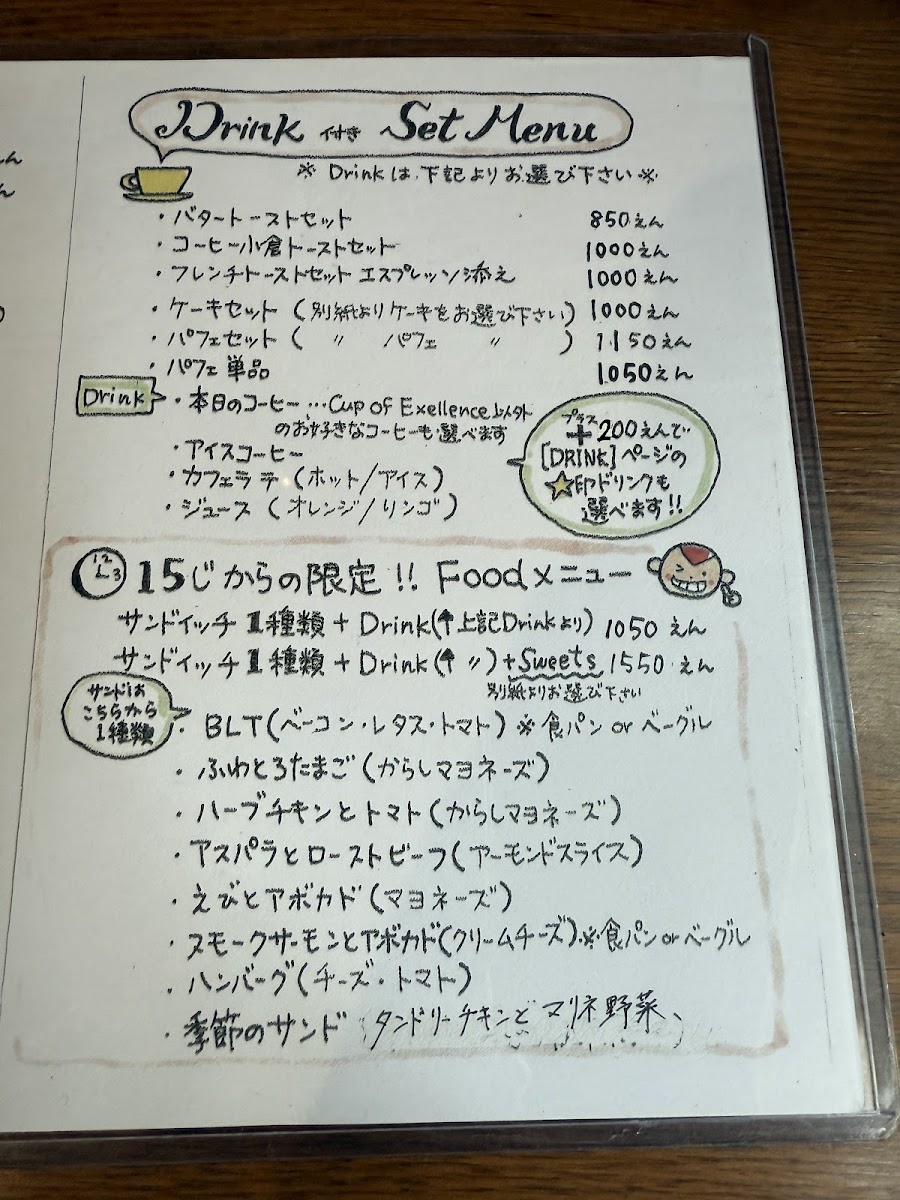 えん
ん
Drink 付き Set Menu
※ Drinkは、下記よりお選び下さい※
・バタートーストセット 850えん
・コーヒー小倉トーストセット 1000えん
・フレンチトーストセット エスプレッソ添え 1000えん
・ケーキセット (別紙よりケーキをお選び下さい) 1000えん
・パフェセット ( 〃 パフェ 〃 ) 1150えん
・パフェ単品 1050えん
Drink
・本日のコーヒー…Cup of Exellence以外
のお好きなコーヒーも選べます
・アイスコーヒー
・カフェラテ (ホット/アイス)
・ジュース (オレンジ/リンゴ)
プラス
+200えんで
[DRINK]ページの
☆印ドリンクも
選べます!!
12
3
15じからの限定!! Foodメニュー
サンドイッチ1種類+Drink(↑上記Drinkより) 1050えん
サンドイッチ1種類+Drink(↑ 〃)+Sweets 1550えん
別紙よりお選び下さい
サンドは
こちらから
1種類
・BLT(ベーコン・レタス・トマト)※食パンorベーグル
・ふわとろたまご(からしマヨネーズ)
・ハーブチキンとトマト(からしマヨネーズ)
・アスパラとローストビーフ(アーモンドスライス)
・えびとアボカド(マヨネーズ)
・スモークサーモンとアボカド(クリームチーズ)※食パンorベーグル
・ハンバーグ(チーズ・トマト)
・季節のサンド タンドリーチキンとマリネ野菜、